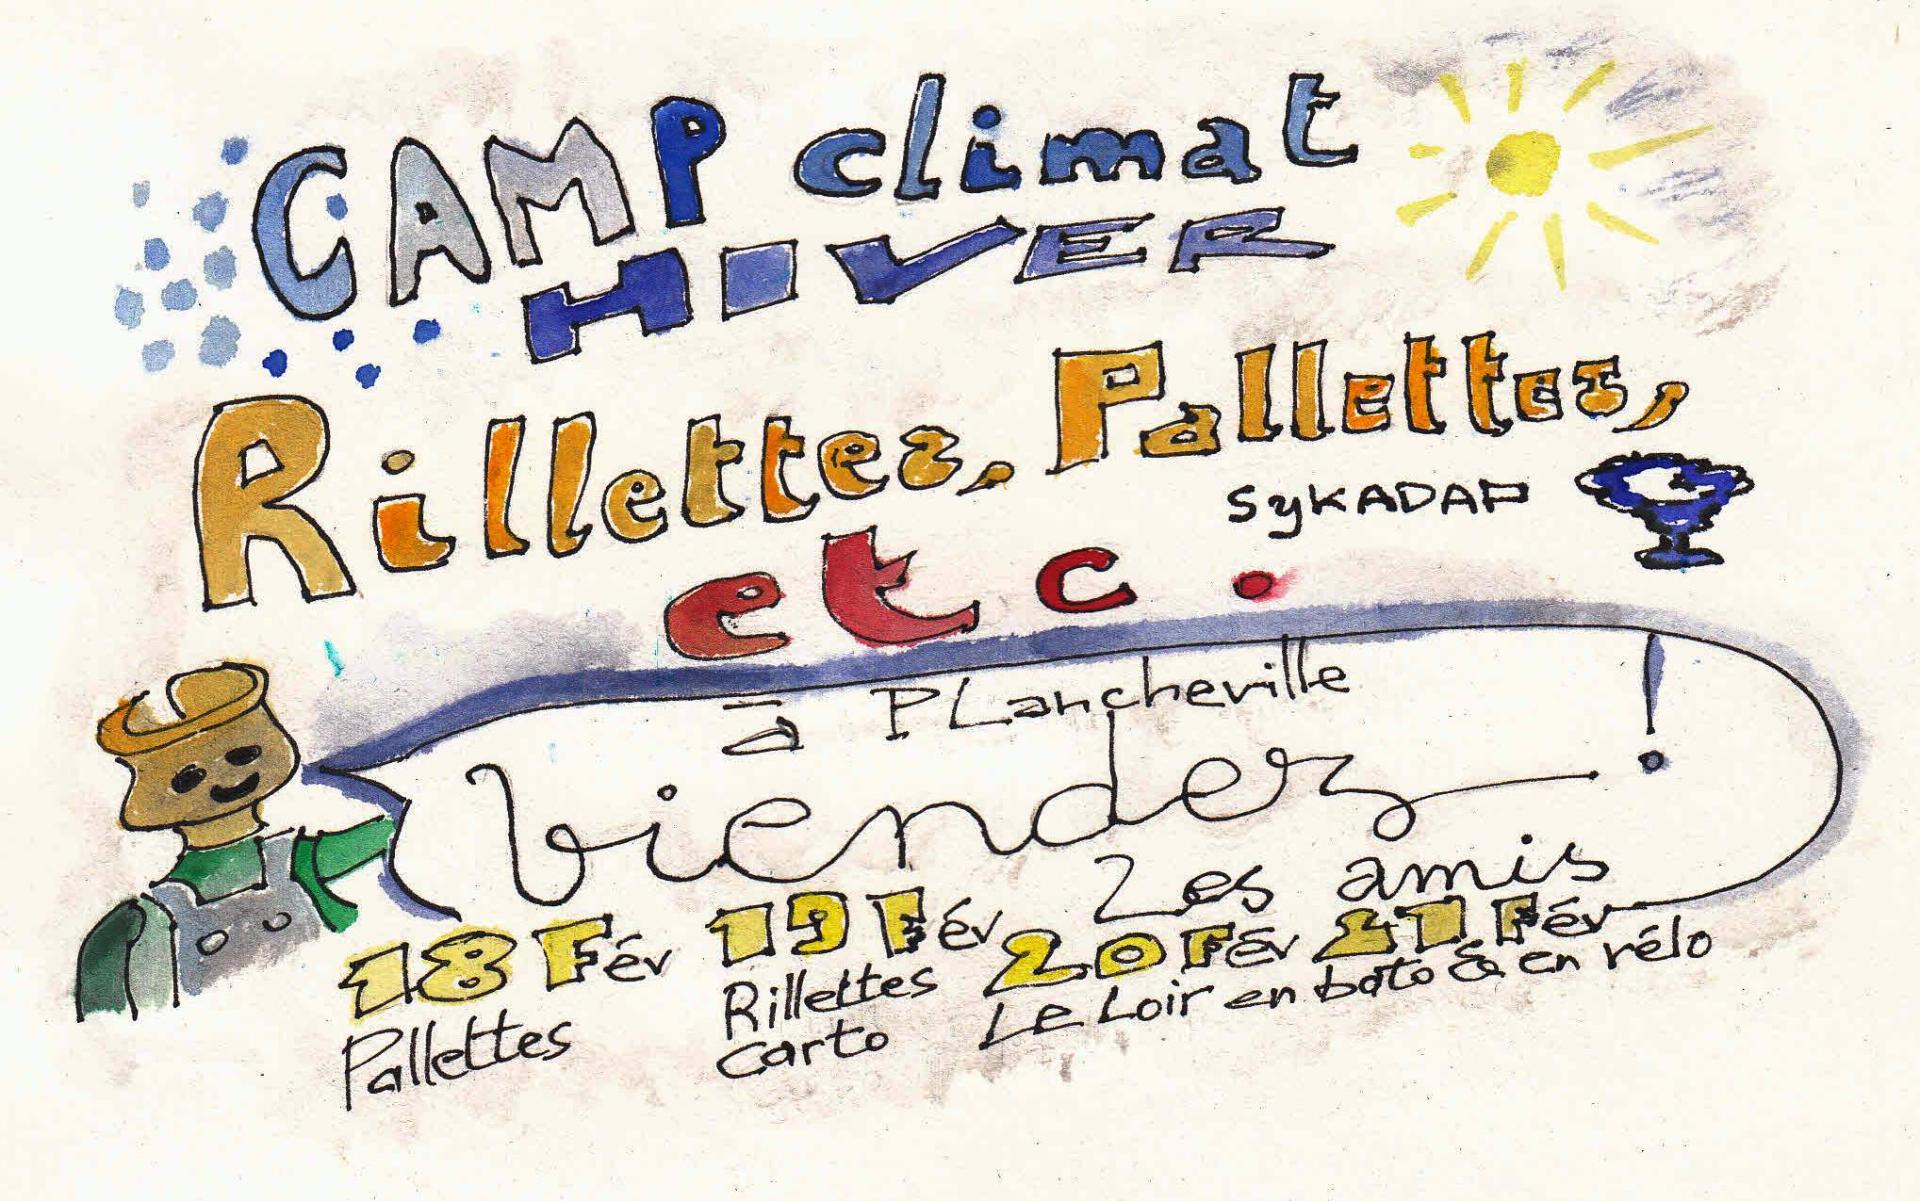 CAMP climat
HIVER
Rillettes, Pallettes,
SyKADAP
etc.
à PLancheville
viendez !
Les amis
18 Fév
Pallettes
19 Fév
Rillettes
carto
20 Fév 21 Fév
Le Loir en bato & en vélo